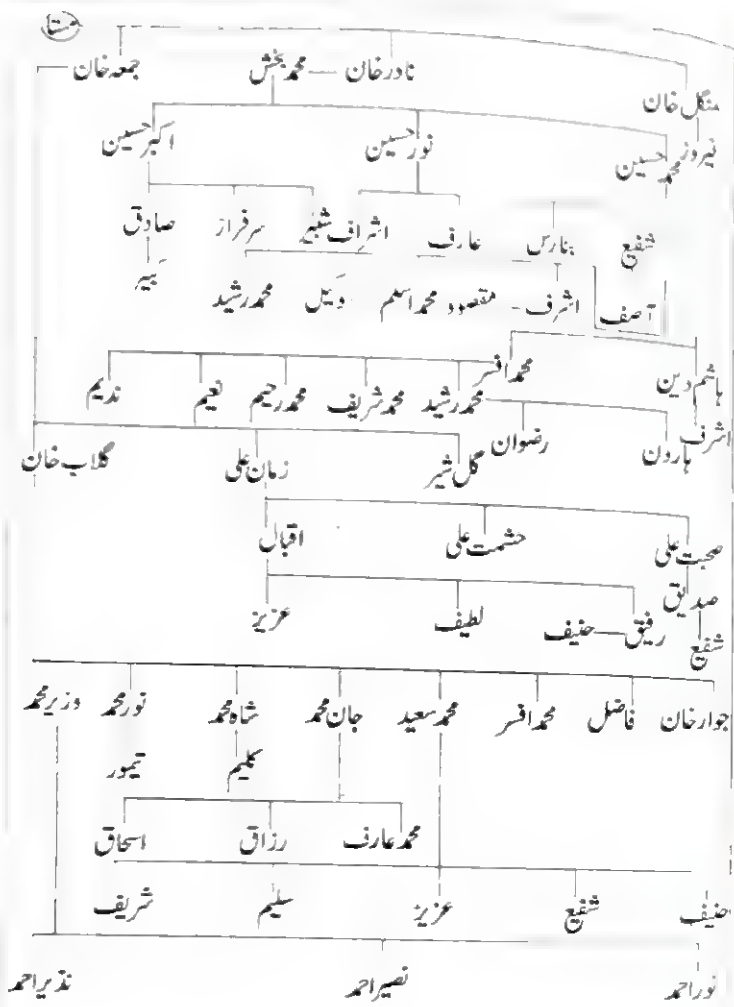 مستا
منگل خان نادر خان — محمد بخش جمعہ خان
نیروز محمد حسین نور حسین اکبر حسین
شفیع بنارس عارف اشراف شبیر سرفراز صادق
آصف اشرف - مقصود محمد اسلم وکیل محمد رشید کبیر
ہاشم دین محمد افسر
اشرف ہارون رضوان محمد رشید محمد شریف محمد رحیم نعیم ندیم
گل شیر زمان علی گلاب خان
صحبت علی حشمت علی اقبال
صدیق
شفیع رفیق — حنیف لطیف عزیز
جوار خان فاضل محمد افسر محمد سعید جان محمد شاہ محمد نور محمد وزیر محمد
کلیم تیمور
محمد عارف رزاق اسحاق
حنیف شفیع عزیز سلیم شریف
نور احمد نصیر احمد نذیر احمد